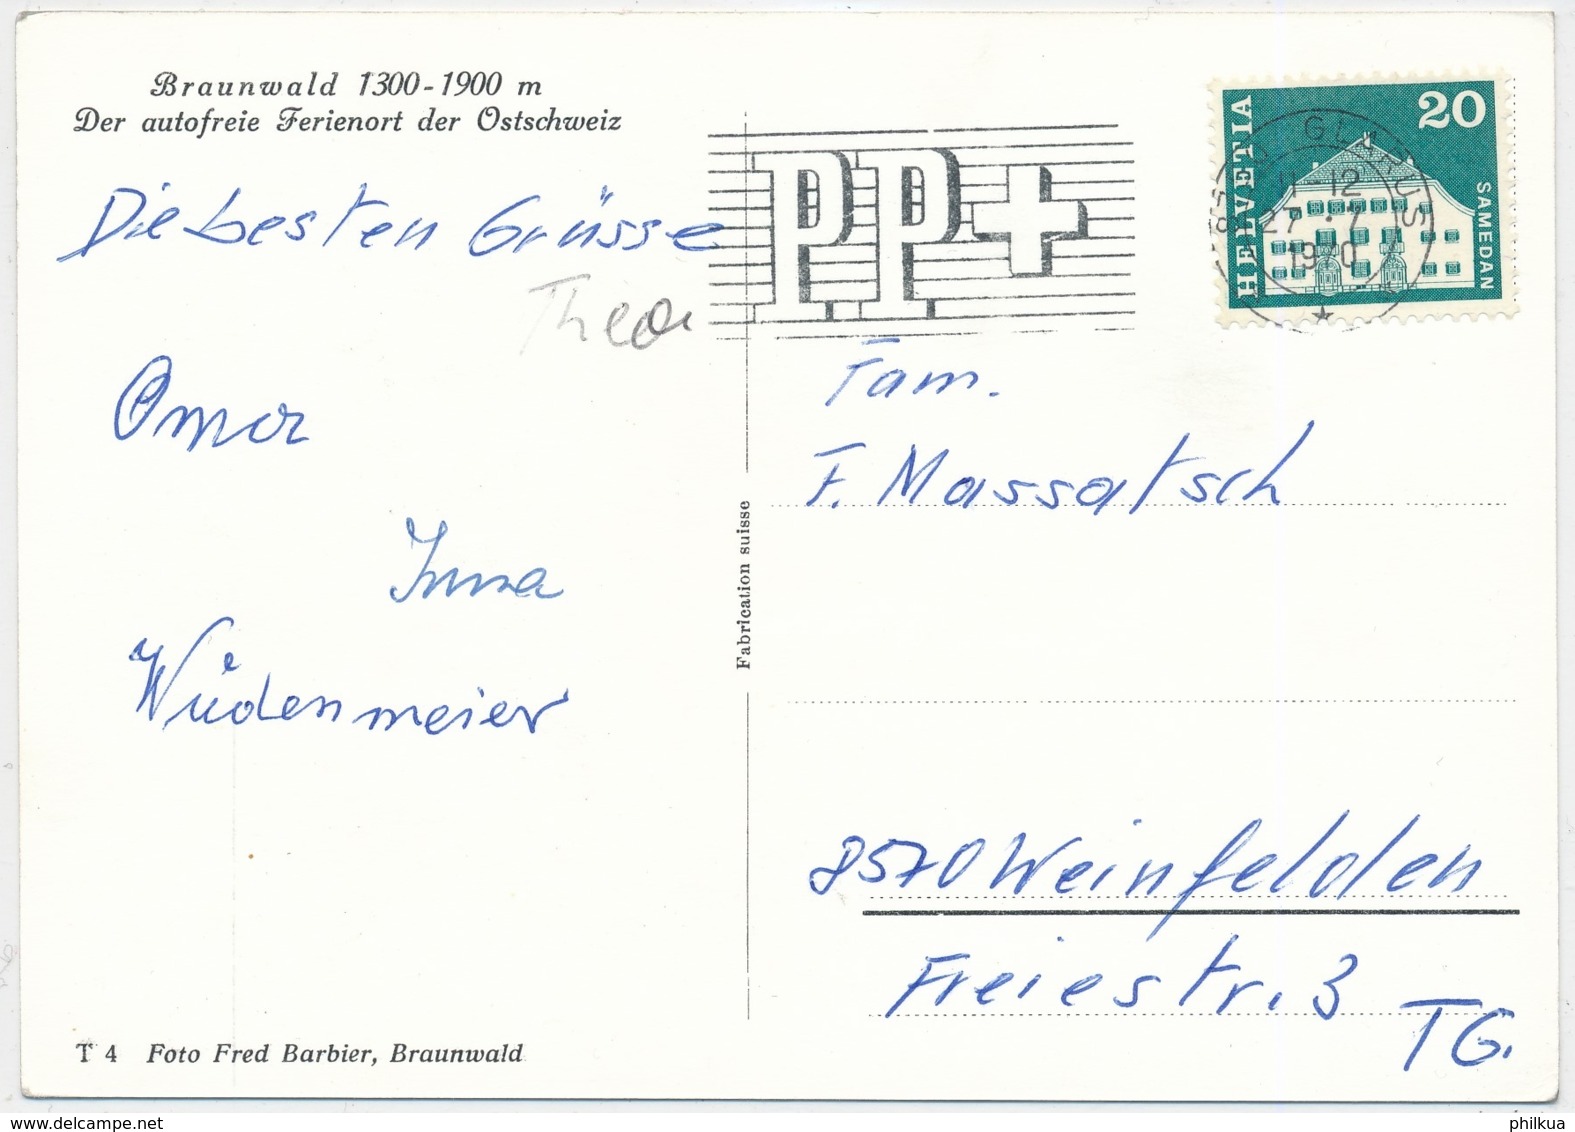 Braunwald 1300-1900 m
Der autofreie Ferienort der Ostschweiz
Die besten Grüsse
Theo
Omar
Irma
Wüdenmeier
T 4 Foto Fred Barbier, Braunwald
Fabrication suisse
PP+
HELVETIA
20
SAMEDAN
GLARUS
11-12
27.-7
1970
Fam.
F. Massatsch
8570 Weinfelden
Freiestr. 3
TG.
philkua
www.delcampe.net